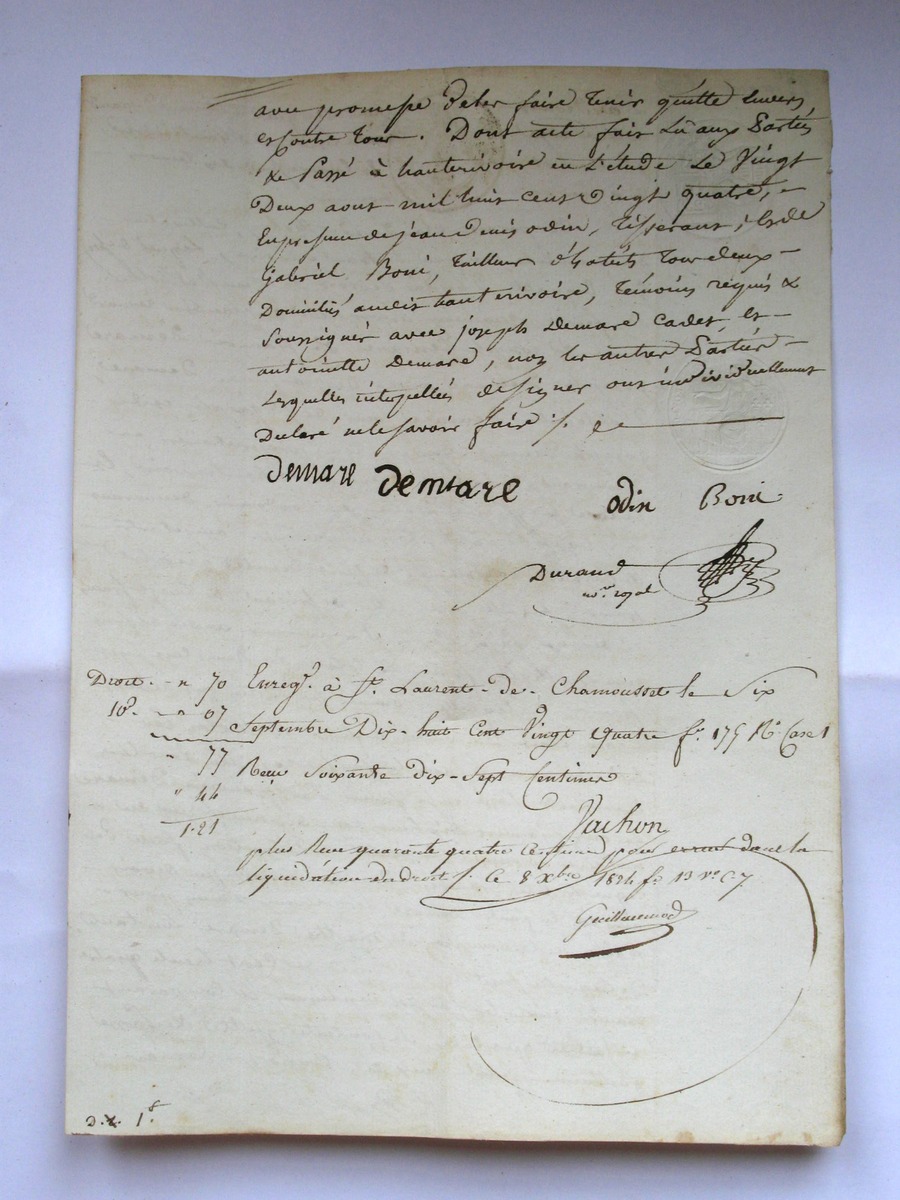 avec promesse de les faire tenir quitte envers
et contre tous. Dont acte fait Lû aux Parties
& Passé à hauterivoire en L'étude Le Vingt
Deux aout mil huit cent Vingt quatre,
En presence de jean Denis odin, Tisserant, & de
Gabriel Boni, Tailleur d'habits Tous deux
Domiciliés audit hauterivoire, Témoins requis &
Soussignés avec joseph Demare Cadet, et
antoinette Demare, non les autres Parties
Lesquelles interpellées de signer ont individuellement
Declaré ne le savoir faire ./.
Demare Demare odin Boni
Durand
nore. royal
Droit. " 70 Enregt. à St. Laurent-de-Chamousset le Six
10e. " 07 Septembre Dix-huit Cent Vingt Quatre fo. 175 Ro. Case 1
" 77 Recu Soixante dix-Sept Centimes
" 44
1.21
Jachon
plus Recu quarante quatre Centimes pour erreur dans la
liquidation du droit ./. Ce 8 Xbre 1824 fo. 13 vo. C. 7
Guillaumod
1f.